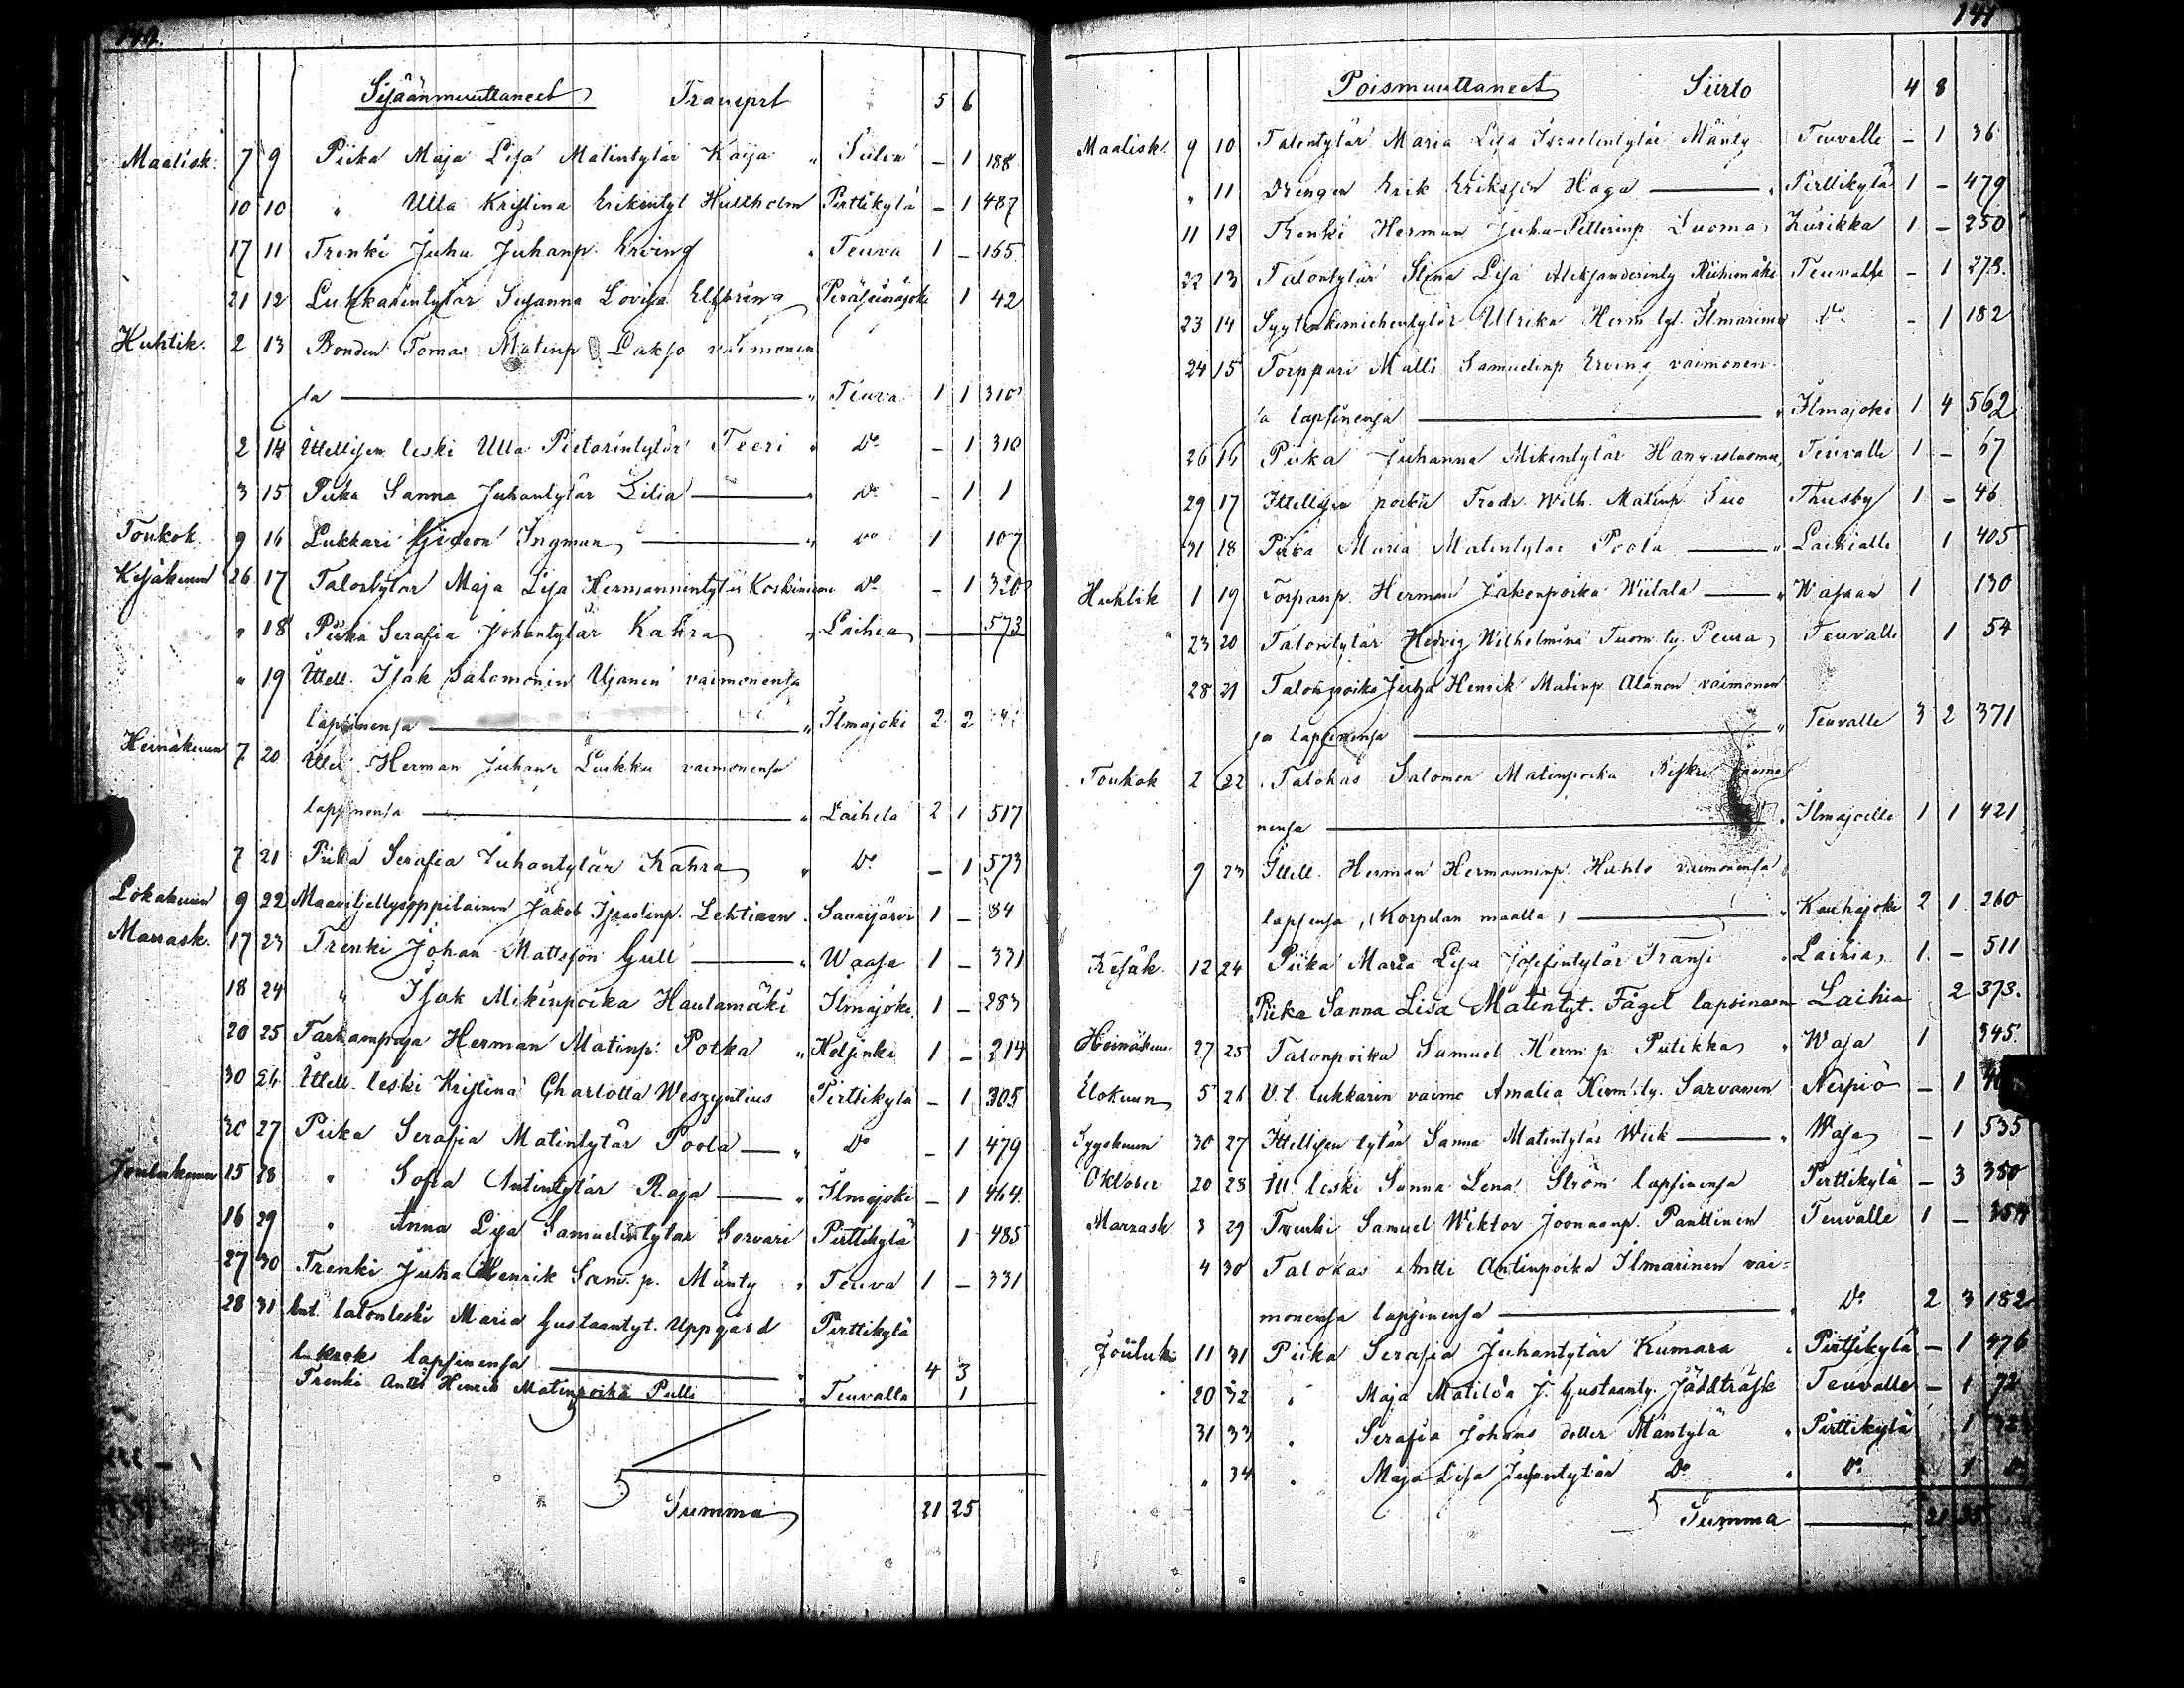 140.
Sisäänmuuttaneet Transprt 5 6
Maalisk. 7 9 Piika Maja Lisa Matintytär Kaija " Sulva – 1 188
10 10 " Ulla Kristina Erikintyt Hultholm Pirttikylä – 1 487
17 11 Trenki Juha Juhanp. Erving " Teuva 1 – 155
21 12 Lukkarintytär Susanna Lovisa Elfving Peräseinäjoki 1 42
Huhtik. 2 13 Bonden Tomas Matinp Lakso vaimonen
sa " Teuva 1 1 310
2 14 Ittellisen leski Ulla Pietarintytär Teeri " Do – 1 310
3 15 Piika Sanna Juhantytär Lilia " Do – 1 1
Toukok. 9 16 Lukkari Gideon Ingman " Do 1 107
Kesäkuun 26 17 Talontytär Maja Lisa Hermannintytär Koskinen Do – 1 320
" 18 Piika Serafia Johantytär Kahra " Laihia 573
" 19 Ittell. Isak Salomonin Ujanen vaimonensa
lapsinensa " Ilmajoki 2 2
Heinäkuun 7 20 Ittel. Herman Juhanp Luukku vaimonensa
lapsinensa " Laihela 2 1 517
7 21 Piika Serafia Juhantytär Kahra " Do – 1 573
Lokakuun 9 22 Maanviljellysoppilainen Jakob Israelinp. Lehtinen . Saarijärvi 1 – 84
Marrask. 17 23 Trenki Johan Mattsson Gull " Waasa 1 – 331
18 24 " Isak Mikinpoika Hautamäki Ilmajoki 1 – 283
20 25 Tarkampuja Herman Matinp. Potka " Helsinki 1 – 214
30 26 Ittell. leski Kristina Charlotta Weszyntius Pirttikylä – 1 305
30 27 Piika Serafia Matintytär Poola " Do – 1 479
Joulukuun 15 28 " Sofia Antintytär Raja " Ilmajoki – 1 464
16 29 " Anna Lisa Samuelintytär Sorvari Pirttikylä 1 485
27 30 Trenki Juha Henrik Sam. p. Mänty " Teuva 1 – 331
28 31 Ent. talonleski Maria Gustaantyt. Uppgård Pirttikylä
lapsinensa " 4 3
Trenki Antti Henrik Matinpoika Pulli " Teuvalla 1
Summa 21 25
141
Poismuuttaneet Siirto 4 8
Maalisk. 9 10 Talontytär Maria Lisa Israelintytär Mänty Teuvalle – 1 36
" 11 Drengen Erik Eriksson Haga " Pirttikylä 1 – 479
11 12 Trenki Herman Juha-Petterinp Luoma Kurikka 1 – 250
22 13 Talontytär Stina Lisa Aleksanderinty Riihimäki Teuvalle – 1 273.
23 14 Syytinkimiehentytär Ulrika Herm. tyt. Ilmarinen Do – 1 182
24 15 Torppari Matti Samuelinp Erving vaimonen
sa lapsinensa " Ilmajoki 1 4 562
26 16 Piika Juhanna Mikintytär Teuvalle 1 – 67
29 17 Ittellisen poika Fredr. Wilh. Matinp Suo Thusby 1 – 46
31 18 Piika Maria Matintytär Poola " Laihialle 1 405
Huhtik 1 19 Torparip. Herman Jakonpoika Wiitala " Wasaan 1 130
" 23 20 Talontytär Hedvig Wilhelmina Tuom. ty. Peura Teuvalle 1 54
28 21 Talonpoika Juha Henrik Matinp Alanen vaimonen
sa lapsinensa " Teuvalle 3 2 371
Toukok 2 22 Talokas Salomon Matinpoika Risku vaimo
nensa " Ilmajoelle 1 1 421
9 23 Ittell. Herman Hermanninp. Huhto vaimonensa
lapsensa, (Korpelan maalla) " Kauhajoki 2 1 260
Kesäk. 12 24 Piika Maria Lisa Josefintytär Fransi " Laihia 1 – 511
Piika Sanna Lisa Matintyt. Fågel lapsineen Laihia 2 373.
Heinäkuu 27 25 Talonpoika Samuel Herm. p Putikka " Wasa 1 345.
Elokuun 5 26 V. t. lukkarin vaimo Amalia Herm. ty. Sarvanen Nerpiö – 1
Syyskuun 30 27 Ittellisen tytär Sanna Matintytär Wiik " Wasa – 1 535
Oktober 20 28 Itt. leski Sanna Lena Ström lapsinensa Pirttikylä – 3 350
Marrask 3 29 Trenki Samuel Wiktor Joonaanp. Panttinen Teuvalle 1 – 354
4 30 Talokas Antti Antinpoika Ilmarinen vai=
monensa lapsinensa " Do 2 3 182
Jouluk. 11 31 Piika Serafia Juhantytär Kumara " Pirttikylä – 1 476
20 32 " Maja Matilda J. Gustaanty. Jäddträsk Teuvalle – 1 72
31 33 " Serafia Johans dotter Mäntylä " Pirttikylä 1
" 34 " Maja Lisa Juhantytär Do " Do 1 Do
Summa 21 35